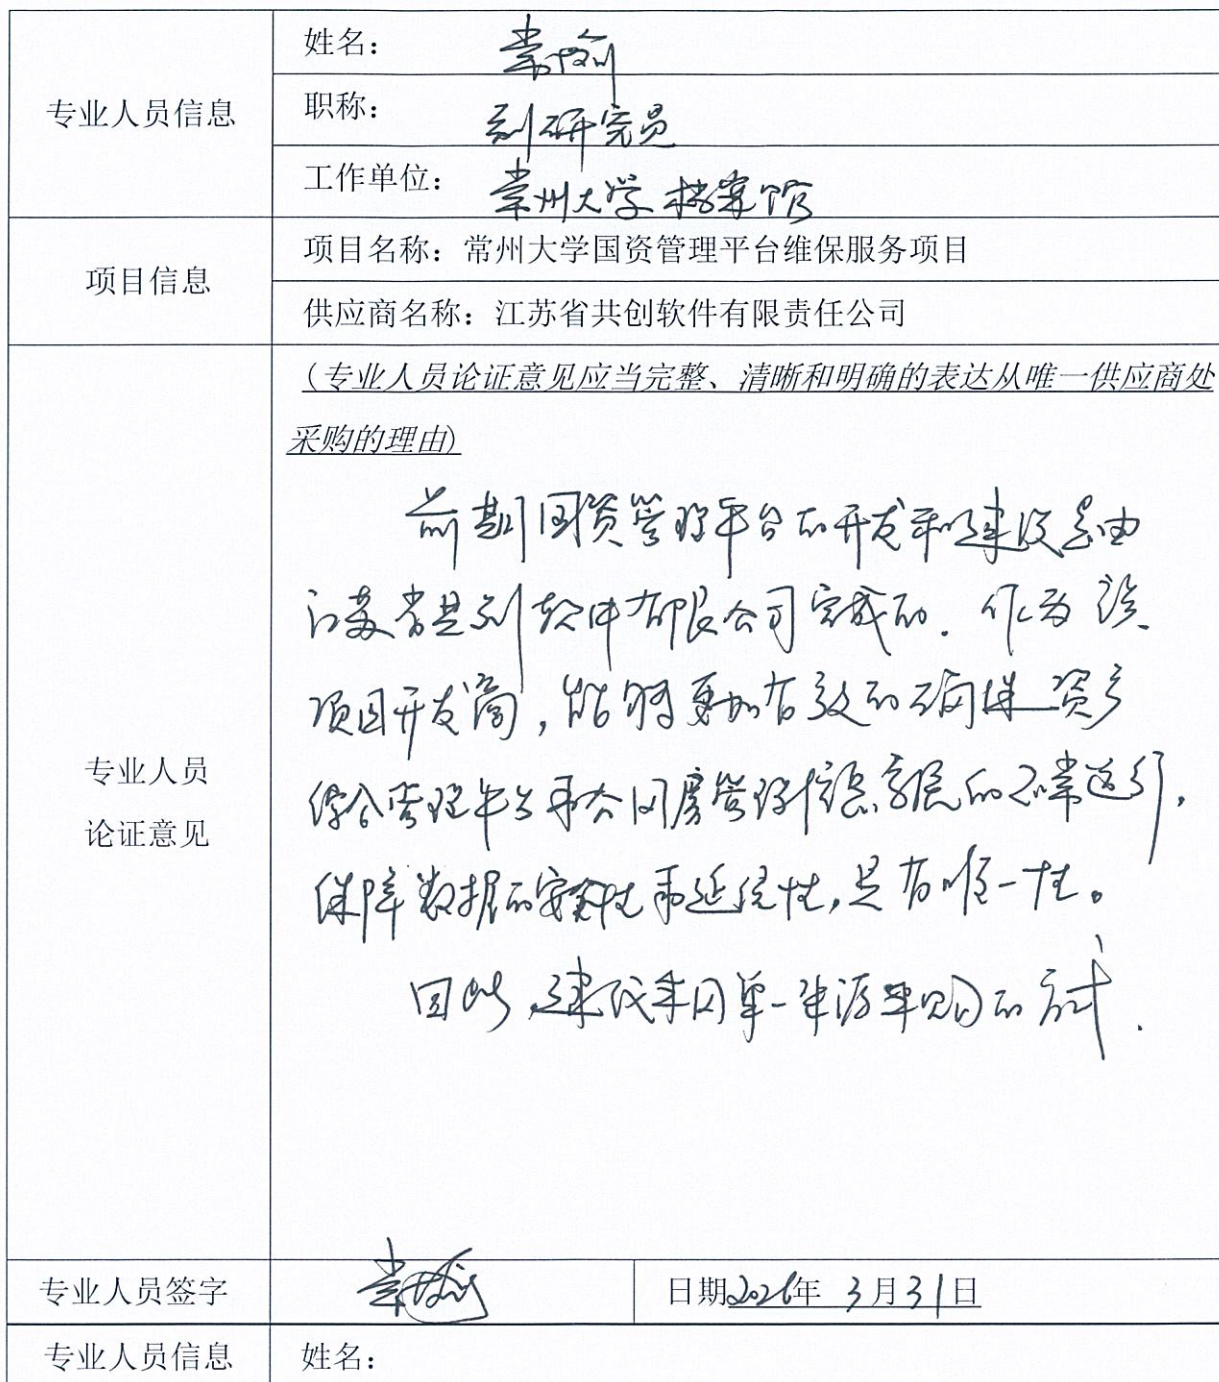 专业人员信息
姓名：常瑜
职称：副研究员
工作单位：常州大学档案馆
项目信息
项目名称：常州大学国资管理平台维保服务项目
供应商名称：江苏省共创软件有限责任公司
专业人员
论证意见
(专业人员论证意见应当完整、清晰和明确的表达从唯一供应商处
采购的理由)
前期国资管理平台的开发和建设是由
江苏省共创软件有限公司完成的. 作为该
项目开发商，能够更加有效的确保资产
综合管理平台和公用房管理信息系统的正常运行，
保障数据的安全性和延续性，具有唯一性。
因此，建议采用单一来源采购的方式.
专业人员签字
日期2026年 3月31日
专业人员信息
姓名：